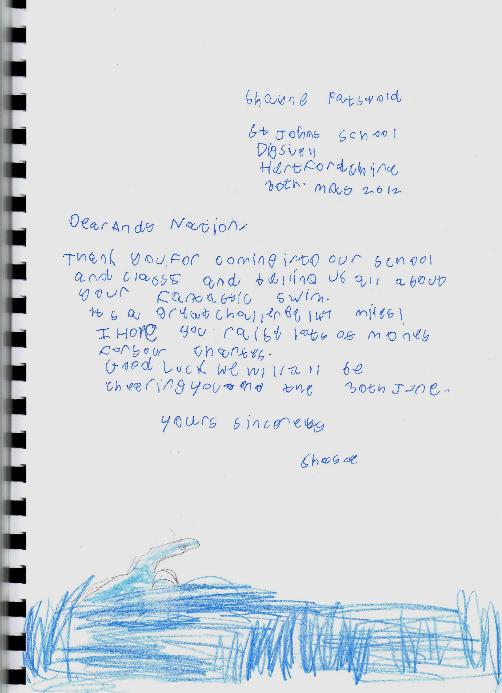 St Johns School
Digswell
Hertfordshire
30th. May 2012
Dear Andy Nation
Thank you for coming into our school
and class and telling us all about
your fantastic swim.
Its a great challenge miles!
I Hope you raise lots of money
for your
Good Luck we will all be
cheering you the 30th June.
yours sincerely